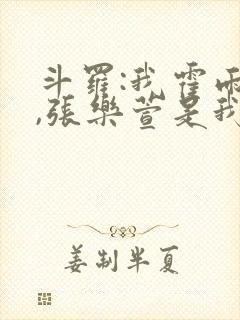 斗羅:我霍雨
,張樂萱是我
姜制半夏